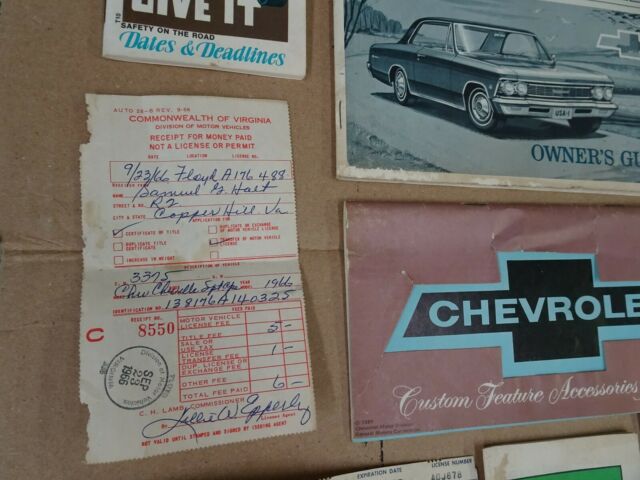 GIVE IT
T10
SAFETY ON THE ROAD
Dates & Deadlines
USA-1
OWNER'S GU
AUTO 26-6 REV. 9-56
COMMONWEALTH OF VIRGINIA
DIVISION OF MOTOR VEHICLES
RECEIPT FOR MONEY PAID
NOT A LICENSE OR PERMIT
DATE LOCATION LICENSE NO.
9/23/66 Floyd A176 438
RECEIVED FROM
NAME Samuel G. Holt
STREET & NO. R2
CITY & STATE Copper Hill Va
APPLICATION FOR
CERTIFICATE OF TITLE
DUPLICATE OR EXCHANGE OF MOTOR VEHICLE LICENSE
DUPLICATE TITLE CERTIFICATE
TRANSFER OF MOTOR VEHICLE LICENSE
INCREASE IN WEIGHT
DESCRIPTION OF VEHICLE
3375
Chev Chevelle 1966
IDENTIFICATION NO. 138176A140325
RECEIPT NO. FEES PAID
C 8550
MOTOR VEHICLE LICENSE FEE
TITLE FEE 5-
SALE OR USE TAX
LICENSE TRANSFER FEE 1-
DUP. LICENSE OR EXCHANGE FEE
OTHER FEE
TOTAL FEE PAID 6-
SEP 23 1966
Division of Motor Vehicles
VIRGINIA
C. H. LAMB, COMMISSIONER
By
License Agent
NOT VALID UNTIL STAMPED AND SIGNED BY ISSUING AGENT
CHEVROLE
Custom Feature Accessories
EXPIRATION DATE LICENSE NUMBER